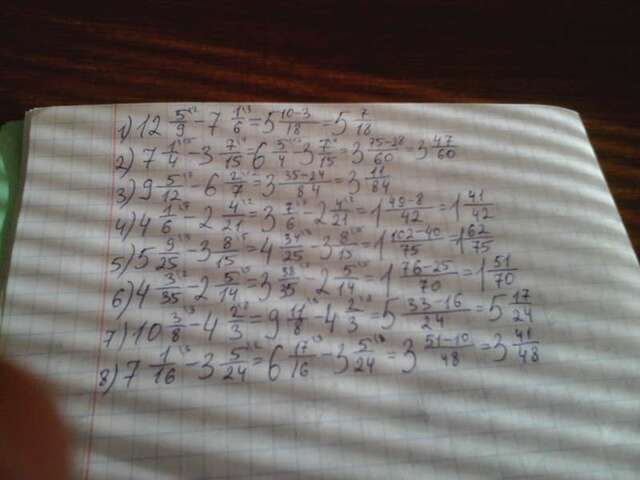 1) 12 5/9 - 7 1/6 = 5 10-3/18 = 5 7/18
2) 7 1/4 - 3 7/15 = 6 5/4 - 3 7/15 = 3 75-28/60 = 3 47/60
3) 9 5/12 - 6 2/7 = 3 35-24/84 = 3 11/84
4) 4 1/6 - 2 4/21 = 3 7/6 - 2 4/21 = 1 49-8/42 = 1 41/42
5) 5 9/25 - 3 8/15 = 4 34/25 - 3 8/15 = 1 102-40/75 = 1 62/75
6) 4 3/35 - 2 5/14 = 3 38/35 - 2 5/14 = 1 76-25/70 = 1 51/70
7) 10 3/8 - 4 2/3 = 9 11/8 - 4 2/3 = 5 33-16/24 = 5 17/24
8) 7 1/16 - 3 5/24 = 6 17/16 - 3 5/24 = 3 51-10/48 = 3 41/48